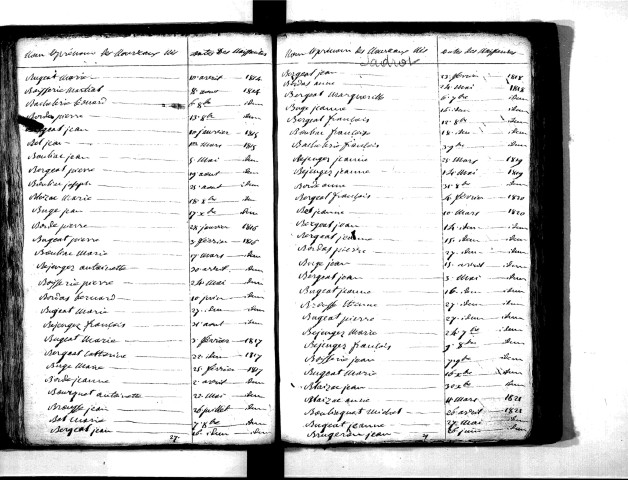 Nom et prénoms des Nouveaux Nés Dates des Naissances
Bugeat Marie 10 avril 1814
Boisserie Martial 8 aout 1814
6 8bre idem
Bordas pierre 13 8bre idem
Bergeat jean 20 janvier 1815
Bot jean 1815
Boubac jean 5 Mai idem
Bergeat pierre 19 aout idem
Boubac joseph 25 aout idem
Blaize Marie 18 8bre idem
Buge jean 17 xbre idem
Borde pierre 28 janvier 1816
Bugeat pierre 2 février 1816
Boubac Marie 17 mars idem
Bejenges antoinette 30 avril idem
Boisserie pierre 24 Mai idem
Bordas bernard 20 juin idem
Bugeat Marie 27 idem idem
Bejenges françois 21 aout idem
Bugeat Marie 2 février 1817
Bergeat Catherine 22 idem 1817
Buge Marie 25 février 1817
Borde jeanne 2 avril idem
Bourguet antoinette 22 Mai idem
Brousse jean 26 juillet idem
Bot Marie 7 8bre idem
Bergeat jean 26 idem idem
Nom et prénoms des Nouveaux Nés Dates des Naissances
Bergeat jean 13 février 1818
Bordas anne 24 Mai 1818
Bergeat Marguerite 6 7bre idem
Buge jeanne 16 idem idem
Bergeat françois 18 8bre idem
Boubac françoise 18 idem idem
françois 9bre idem
Bejenges jeanne 25 Mars 1819
Bejenges jeanne 14 Mai 1819
Borde anne 31 8bre idem
Bergeat françois 4 février 1820
Bot jeanne 10 Mars 1820
Bergeat jean 14 idem idem
Bergeat jeanne 15 idem idem
Bordas pierre 27 idem idem
Buge jean 15 avril idem
Bergeat jean 3 Mai idem
Bugeat jeanne 16 idem idem
Brousse Etienne 27 idem idem
Bugeat pierre 27 idem idem
Bejenges Marie 24 7bre idem
Bejenges françois 9 8bre idem
Boisserie jean 9bre idem
Bugeat Marie 16 xbre idem
Blaize jean 30 xbre idem
Blaize anne 11 mars 1821
Michel 26 avril 1821
Bugeat jeanne 27 Mai idem
Brugeron jean juin idem